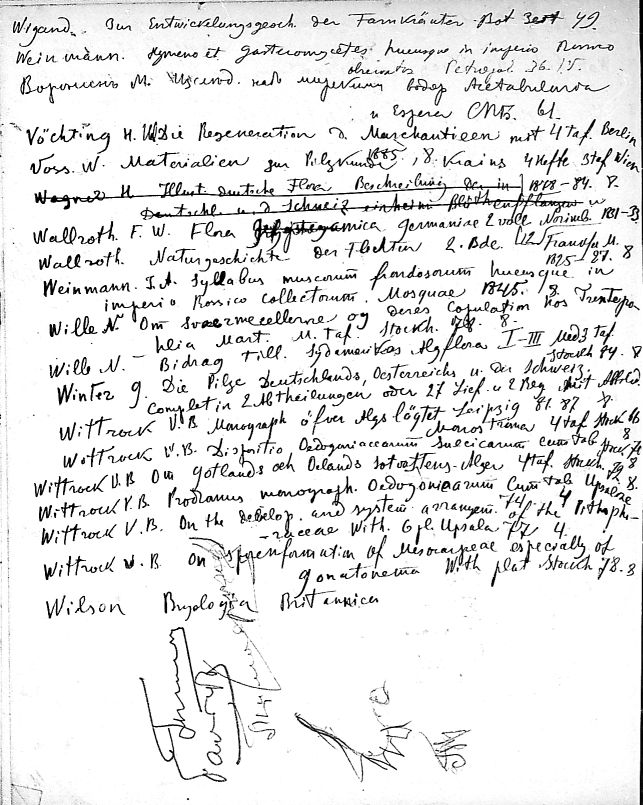 Wigand. Zur Entwickelungsgesch. der Farnkräuter. Bot Zeit 49.
Weinmann. Hymeno et Gasteromycetes hucusque in imperio Rosso
observatos Petropol. 36.
Воронихин М. Исслед. над
Acetabularia
и Espera СПБ. 61.
Vöchting H. Die Regeneration d. Marchantieen mit 4 taf. Berlin
1885. 8.
Voss. W. Materialien zur Pilzkunde Krains 4 Hefte 3 taf Wien
Wagner H. Illust deutsche Flora Beschreibung der in 1868-84. 8.
Deutschl. u. d. Schweiz einheim Blüthenpflanzen u
Wallroth F. W. Flora cryptogamica germaniae 2 voll Norimb. 1831-33
Wallroth Naturgeschichte der Flechten 2. Bde. Frankfu M.
1825-27. 8
Weinmann. I. A. Syllabus muscorum frondosorum hucusque in
imperio Rossico collectorum. Mosquae 1845. 8.
Wille N. Om Svaermecellerne og deres Copulation hos Trentepo
hlia Mart. M. Taf. Stockh. 78. 8.
Wille N. — Bidrag till Sydamerikas Algflora I-III Med 3 taf
Stockh 84. 8
Winter G. Die Pilze Deutschlands, Oesterreichs u. der Schweiz
complet in 2 Abtheilungen oder 27 Lief. u 2 Reg. Mit Abbild.
Leipzig 81. 87. 8.
Wittrock V.B Monograph öfver Algslägtet Monostroma 4 taf Stock 66
8
Wittrock V.B. Dispositio Oedogoniacearum suecicarum cum tab Stock 70
Wittrock V.B Om Gotlands och Oelands sötvattens-Alger 4 taf. Stockh. 72 8
Wittrock V.B. Prodromus monograph. Oedogoniearum Cum tab Upsalae
74. 4
Wittrock V.B. On the develop. and system. arrangem. of the Pithopho-
raceae With 6 pl. Upsala 77 4.
Wittrock V. B. On sporeformation of Mesocarpeae especially of
Gonatonema With plat Stockh 78. 8
Wilson Bryologia Britannica